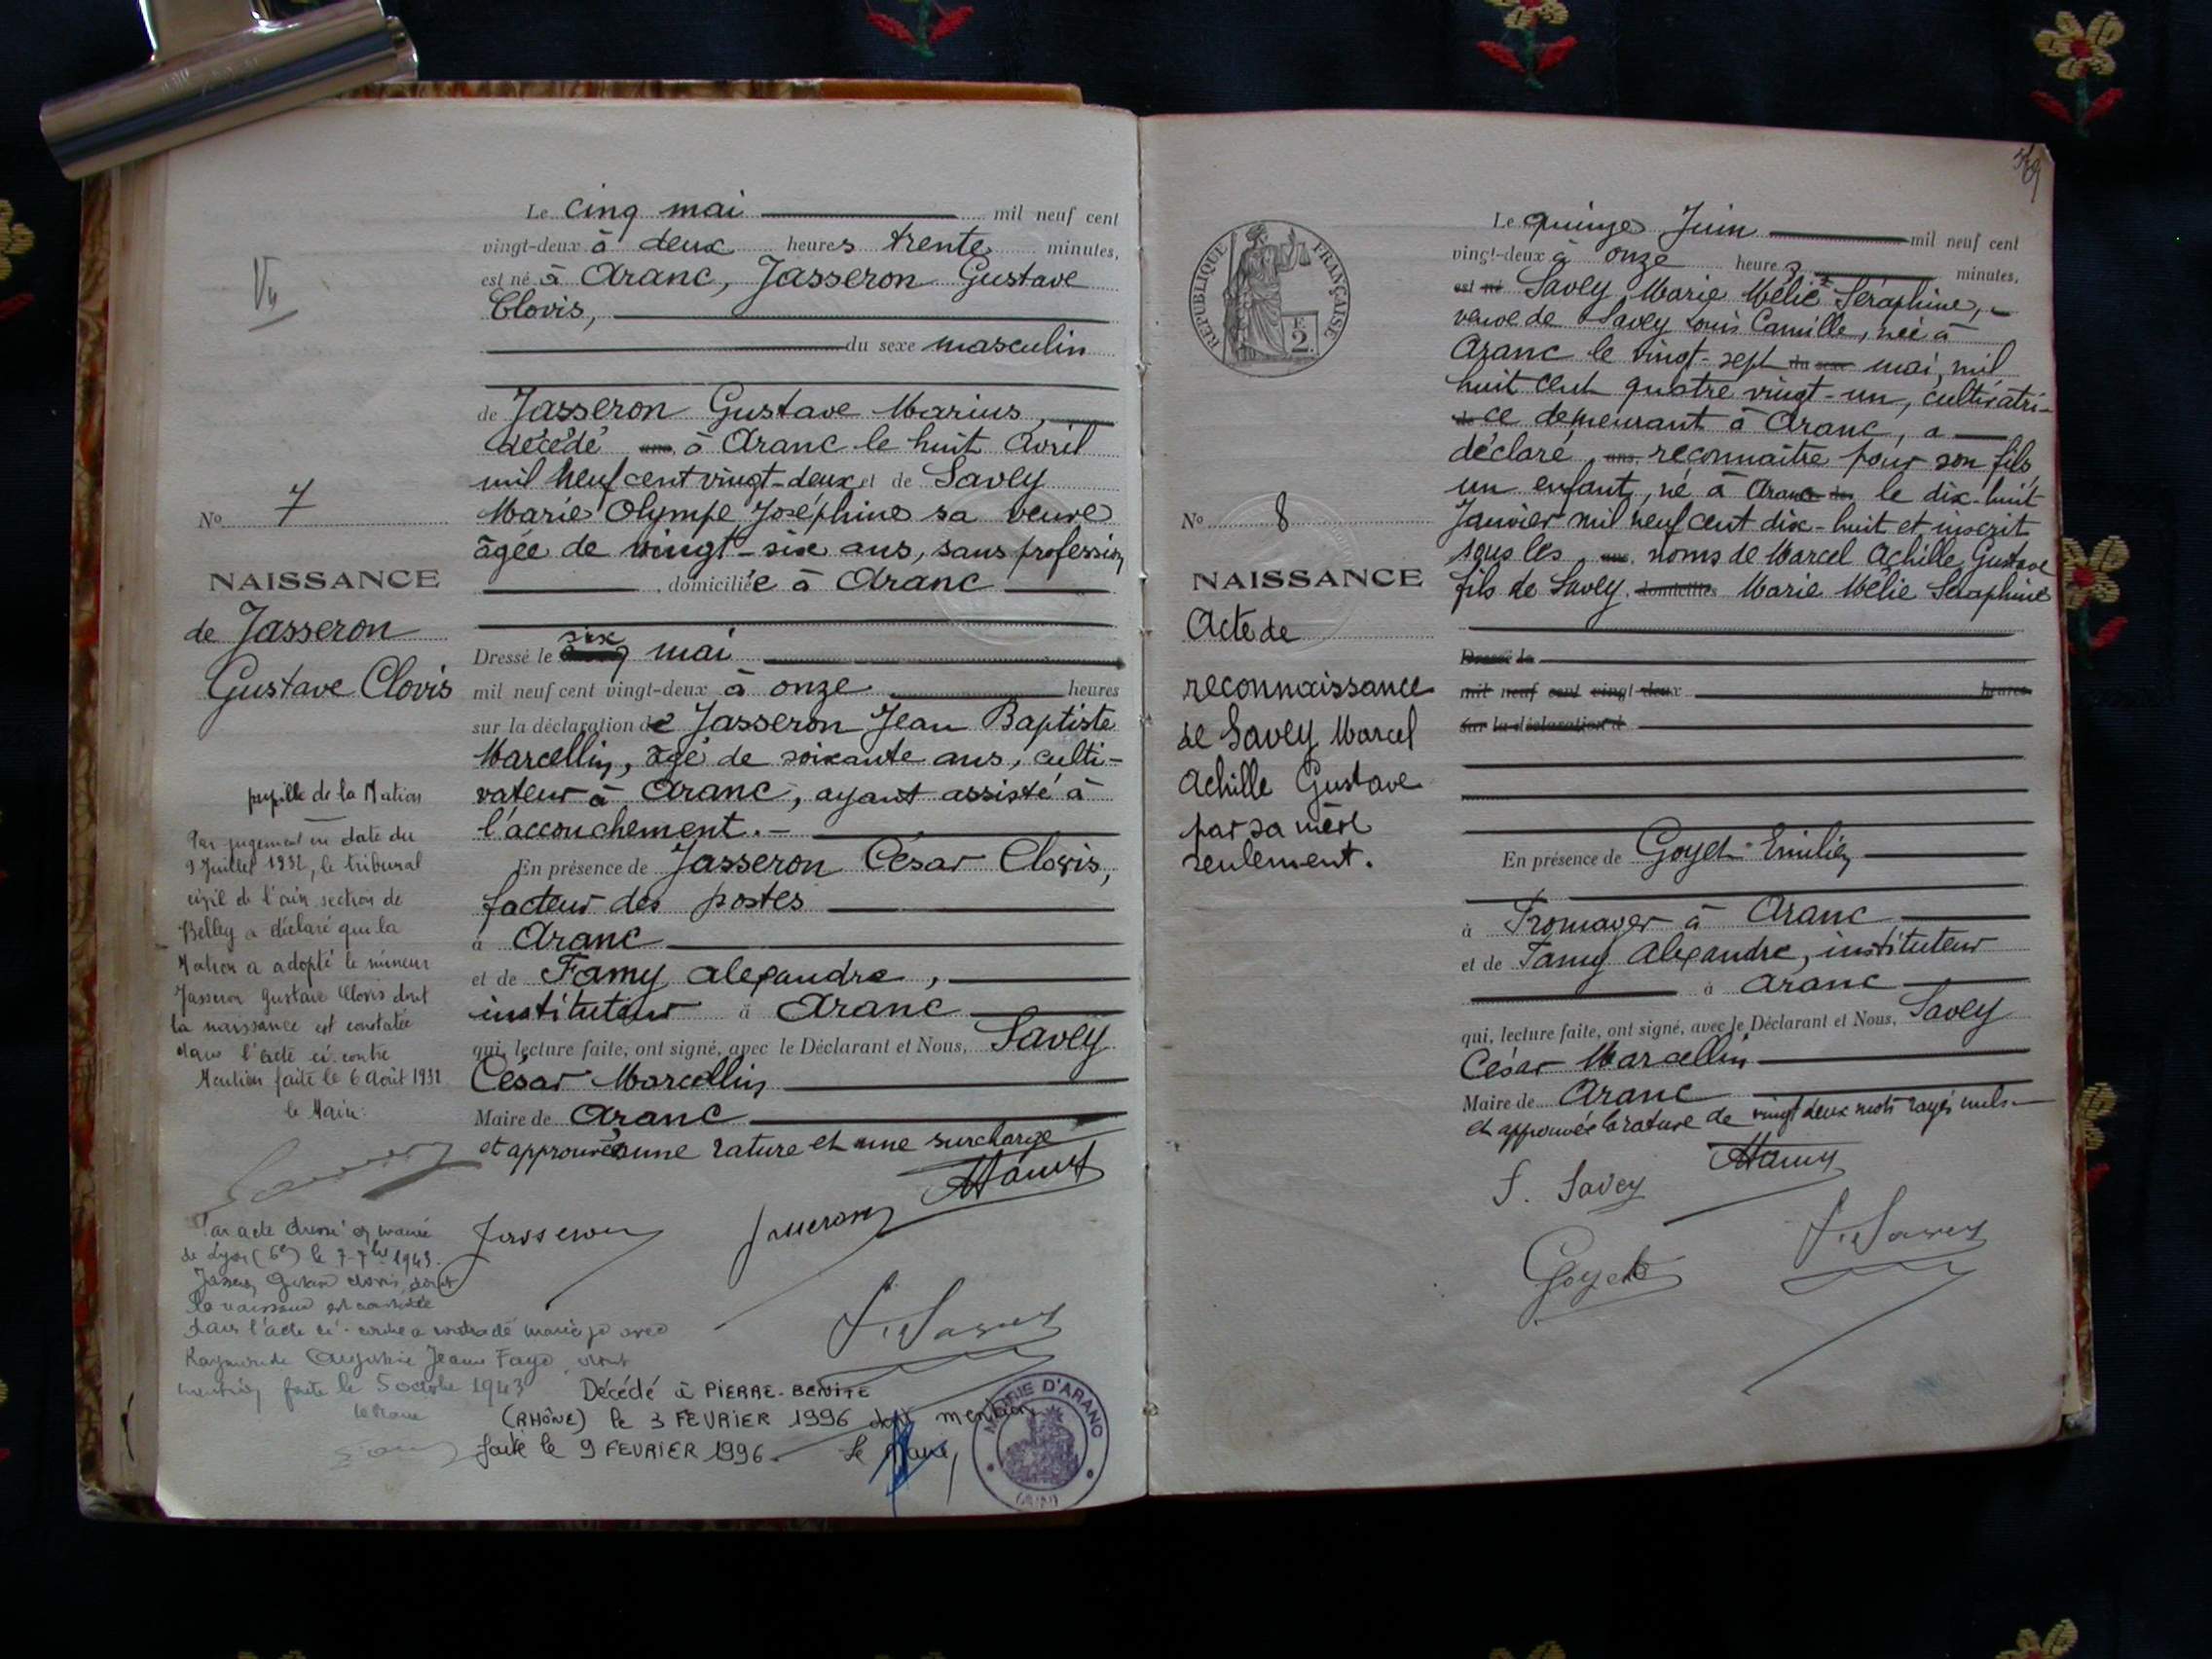 Vu
No 7
NAISSANCE
de Jasseron
Gustave Clovis
pupille de la Nation
Par jugement en date du
9 Juillet 1932, le tribunal
civil de l'ain section de
Belley a déclaré que la
Nation a adopté le mineur
Jasseron Gustave Clovis dont
la naissance est constatée
dans l'acte ci-contre
Mention faite le 6 Août 1932
le Maire
Par acte dressé en mairie
de Lyon (6e) le 7-7bre 1943.
Jasseron Gustave Clovis, dont
la naissance est constatée
dans l'acte ci-contre a contracté mariage avec
Raymonde Augustine Jeanne Faye, dont
mention faite le 5 octobre 1943
le Maire
Le cinq mai mil neuf cent
vingt-deux à deux heures trente minutes,
est né à Aranc, Jasseron Gustave
Clovis,
du sexe masculin
de Jasseron Gustave Marius,
décédé ans, à Aranc le huit Avril
mil neuf cent vingt-deux et de Savey
Marie Olympe Joséphine sa veuve
âgée de vingt-six ans, sans profession
domiciliée à Aranc
Dressé le six mai
mil neuf cent vingt-deux à onze heures
sur la déclaration de Jasseron Jean Baptiste
Marcellin, âgé de soixante ans, culti-
vateur à Aranc, ayant assisté à
l'accouchement.-
En présence de Jasseron César Clovis,
facteur des postes
à Aranc
et de Famy Alexandre,
instituteur à Aranc
qui, lecture faite, ont signé, avec le Déclarant et Nous, Savey
César Marcellin
Maire de Aranc
et approuvé une rature et une surcharge
AFamy
Jasseron
Jasseron
Savey
Décédé à PIERRE-BENITE
(RHÔNE) le 3 FÉVRIER 1996 dont mention
faite le 9 FEVRIER 1996. Le Maire,
MAIRIE D'ARANC
(AIN)
RÉPUBLIQUE FRANÇAISE
F.
2
No 8
NAISSANCE
Acte de
reconnaissance
de Savey Marcel
Achille Gustave
par sa mère
seulement.
Le quinze Juin mil neuf cent
vingt-deux à onze heures minutes,
est né Savey Marie Mélie Séraphine,
veuve de Savey Louis Camille, née à
Aranc le vingt-sept du sexe mai, mil
huit cent quatre vingt-un, cultivatri-
de ce demeurant à Aranc, a
déclaré, ans, reconnaitre pour son fils,
un enfant, né à Aranc le dix-huit
Janvier mil neuf cent dix-huit et inscrit
sous les ans, noms de Marcel Achille Gustave
fils de Savey domiciliés Marie Mélie Séraphine
Dressé le
mil neuf cent vingt-deux heures
sur la déclaration d
En présence de Goyet Emilien
à Fromager à Aranc
et de Famy Alexandre, instituteur
à Aranc
qui, lecture faite, ont signé, avec le Déclarant et Nous, Savey
César Marcellin
Maire de Aranc
et approuvée la rature de vingt deux mots rayés nuls
S. Savey AFamy
Goyet Savey